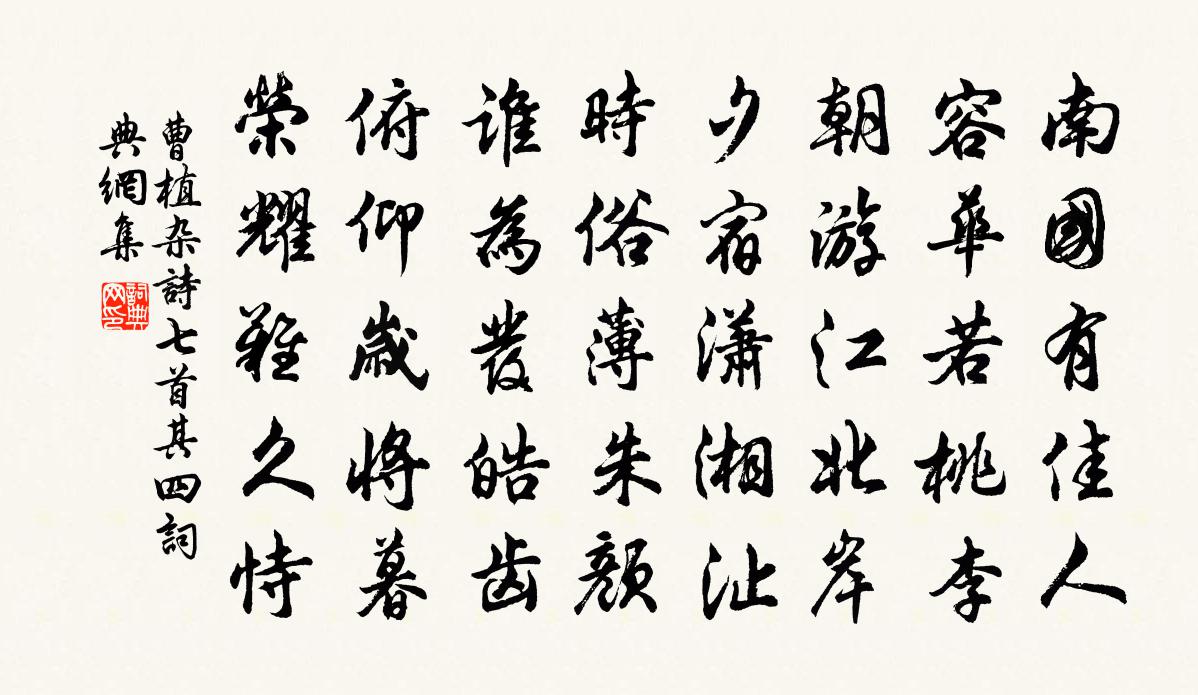 南國有佳人
容華若桃李
朝游江北岸
夕宿瀟湘沚
時俗薄朱顏
誰為發皓齒
俯仰歲將暮
榮耀難久恃
曹植杂詩七首其四詞
典網集
詞典
网印